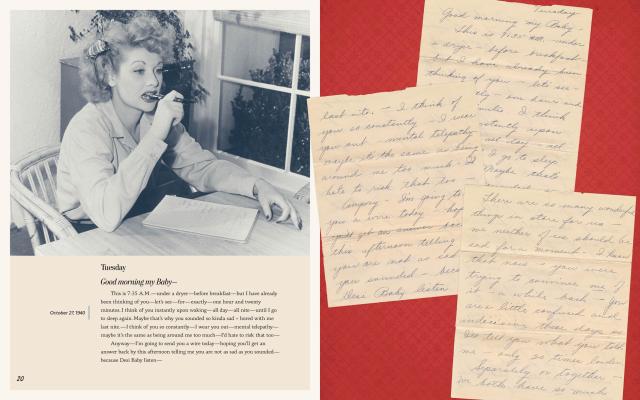 Tuesday
Good morning my Baby—
This is 7:35 A.M.—under a dryer—before breakfast—but I have already
been thinking of you—let's see—for—exactly—one hour and twenty
minutes. I think of you instantly upon waking—all day—all nite—until I go
to sleep again. Maybe that's why you sounded so kinda sad – bored with me
last nite.—I think of you so constantly—I wear you out—mental telepathy—
maybe it's the same as being around me too much—I'd hate to risk that too—
Anyway—I'm going to send you a wire today—hoping you'll get an
answer back by this afternoon telling me you are not as sad as you sounded—
because Desi Baby listen—
October 27, 1940
20
Tuesday
Good morning my Baby –
This is 7:35 A.M. under
a dryer – before breakfast –
but I have already been
thinking of you – let's see –
one hour and
I think
instantly upon
all day – all
I go to sleep
Maybe that's
last nite. – I think of
you so constantly – I wear
you out – mental telepathy
maybe it's the same as being
around me too much – I'd
hate to risk that too –
I'm going to
you a wire today – 
this afternoon telling
you are not as sad
you sounded –
Desi Baby listen
There are so many wonderful
things in store for us –
me neither of us should be
sad for a moment – I know
that now – you were
trying to convince me of
it – a while back –
are a little confused and
these days so
tell you what you told
me – only so times louder
Separately or together –
we both have so much